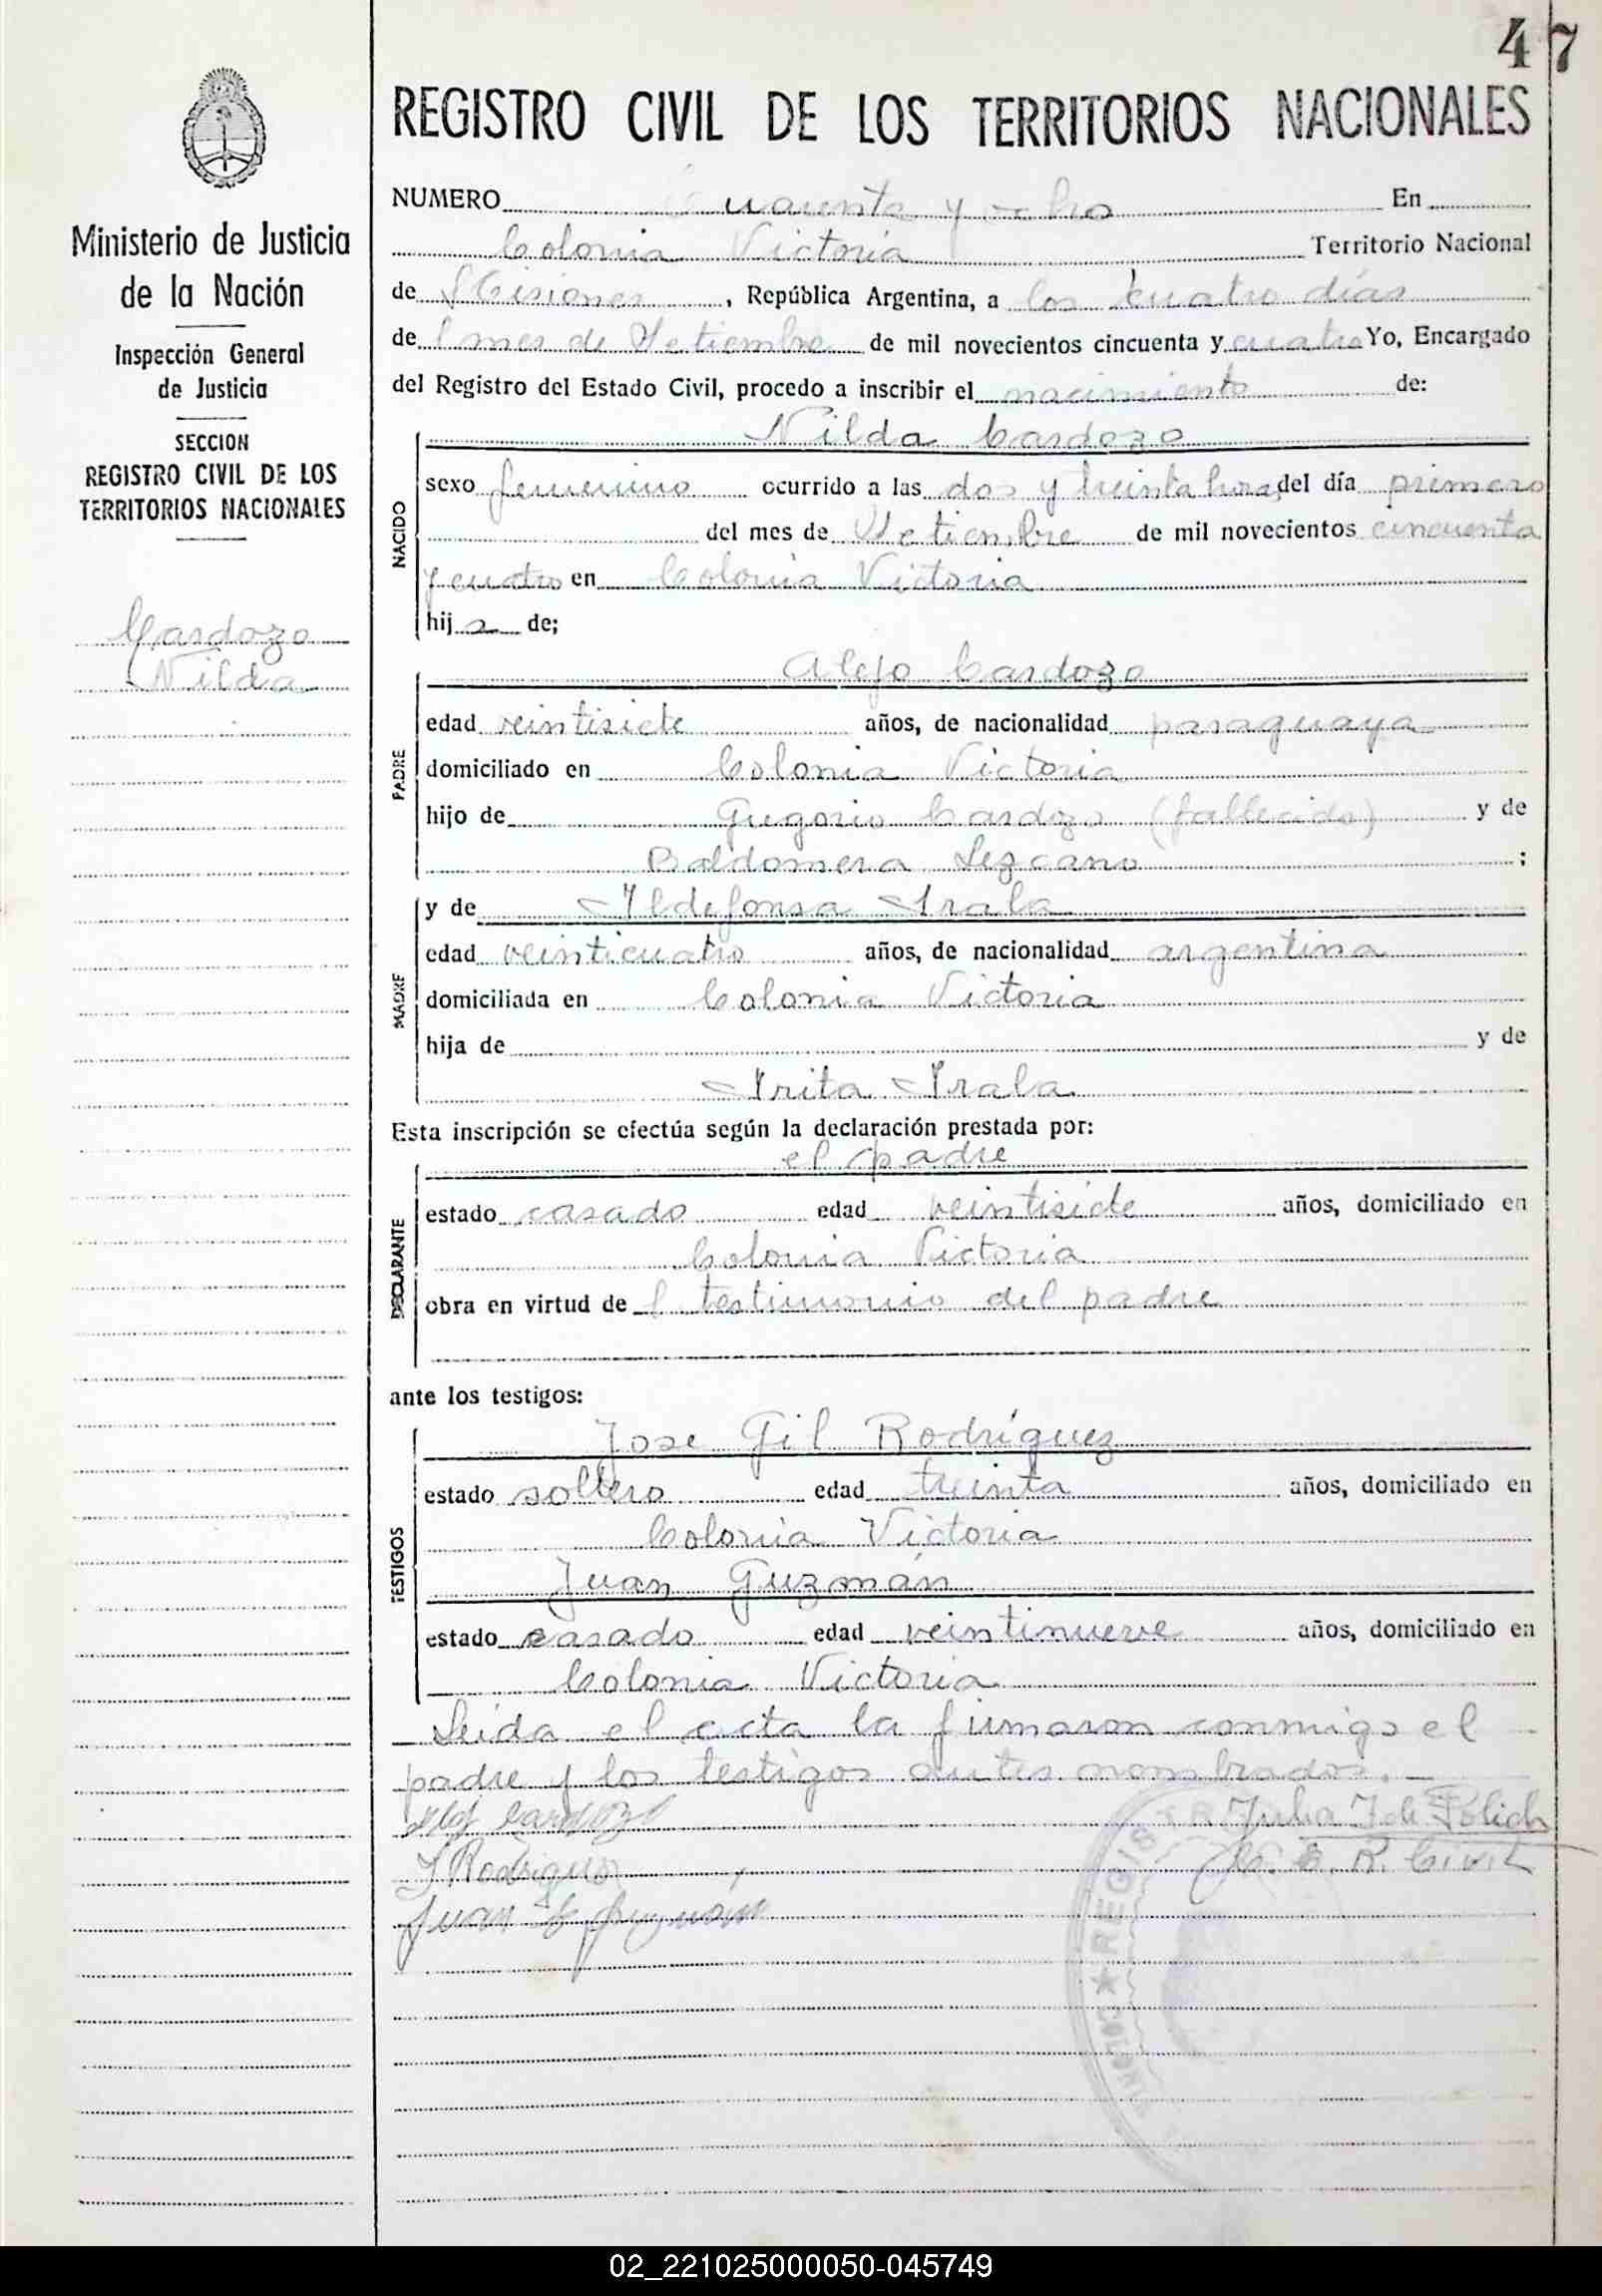 47
REGISTRO CIVIL DE LOS TERRITORIOS NACIONALES
Ministerio de Justicia
de la Nación
Inspección General
de Justicia
SECCION
REGISTRO CIVIL DE LOS
TERRITORIOS NACIONALES
Cardozo
Nilda
NUMERO Cuarenta y ocho En
Colonia Victoria Territorio Nacional
de Misiones, República Argentina, a los cuatro días
del mes de Setiembre de mil novecientos cincuenta y cuatro Yo, Encargado
del Registro del Estado Civil, procedo a inscribir el nacimiento de:
Nilda Cardozo
NACIDO
sexo femenino ocurrido a las dos y treinta horas del día primero
del mes de Setiembre de mil novecientos cincuenta
y cuatro en Colonia Victoria
hija de;
Alejo Cardozo
PADRE
edad veintisiete años, de nacionalidad paraguaya
domiciliado en Colonia Victoria
hijo de Gregorio Cardozo (fallecido) y de
Baldomera Lezcano;
y de Ildefonsa Irala
MADRE
edad veinticuatro años, de nacionalidad argentina
domiciliada en Colonia Victoria
hija de y de
Irita Irala
Esta inscripción se efectúa según la declaración prestada por:
el padre
DECLARANTE
estado casado edad veintisiete años, domiciliado en
Colonia Victoria
obra en virtud del testimonio del padre
ante los testigos:
Jose Gil Rodríguez
TESTIGOS
estado soltero edad treinta años, domiciliado en
Colonia Victoria
Juan Guzmán
estado casado edad veintinueve años, domiciliado en
Colonia Victoria
Leida el acta la firmaron conmigo el
padre y los testigos antes nombrados.
Cardozo
J Rodriguez
Juan Guzmán
Julia J de Polich
R. Civil
REGIS
02_221025000050-045749